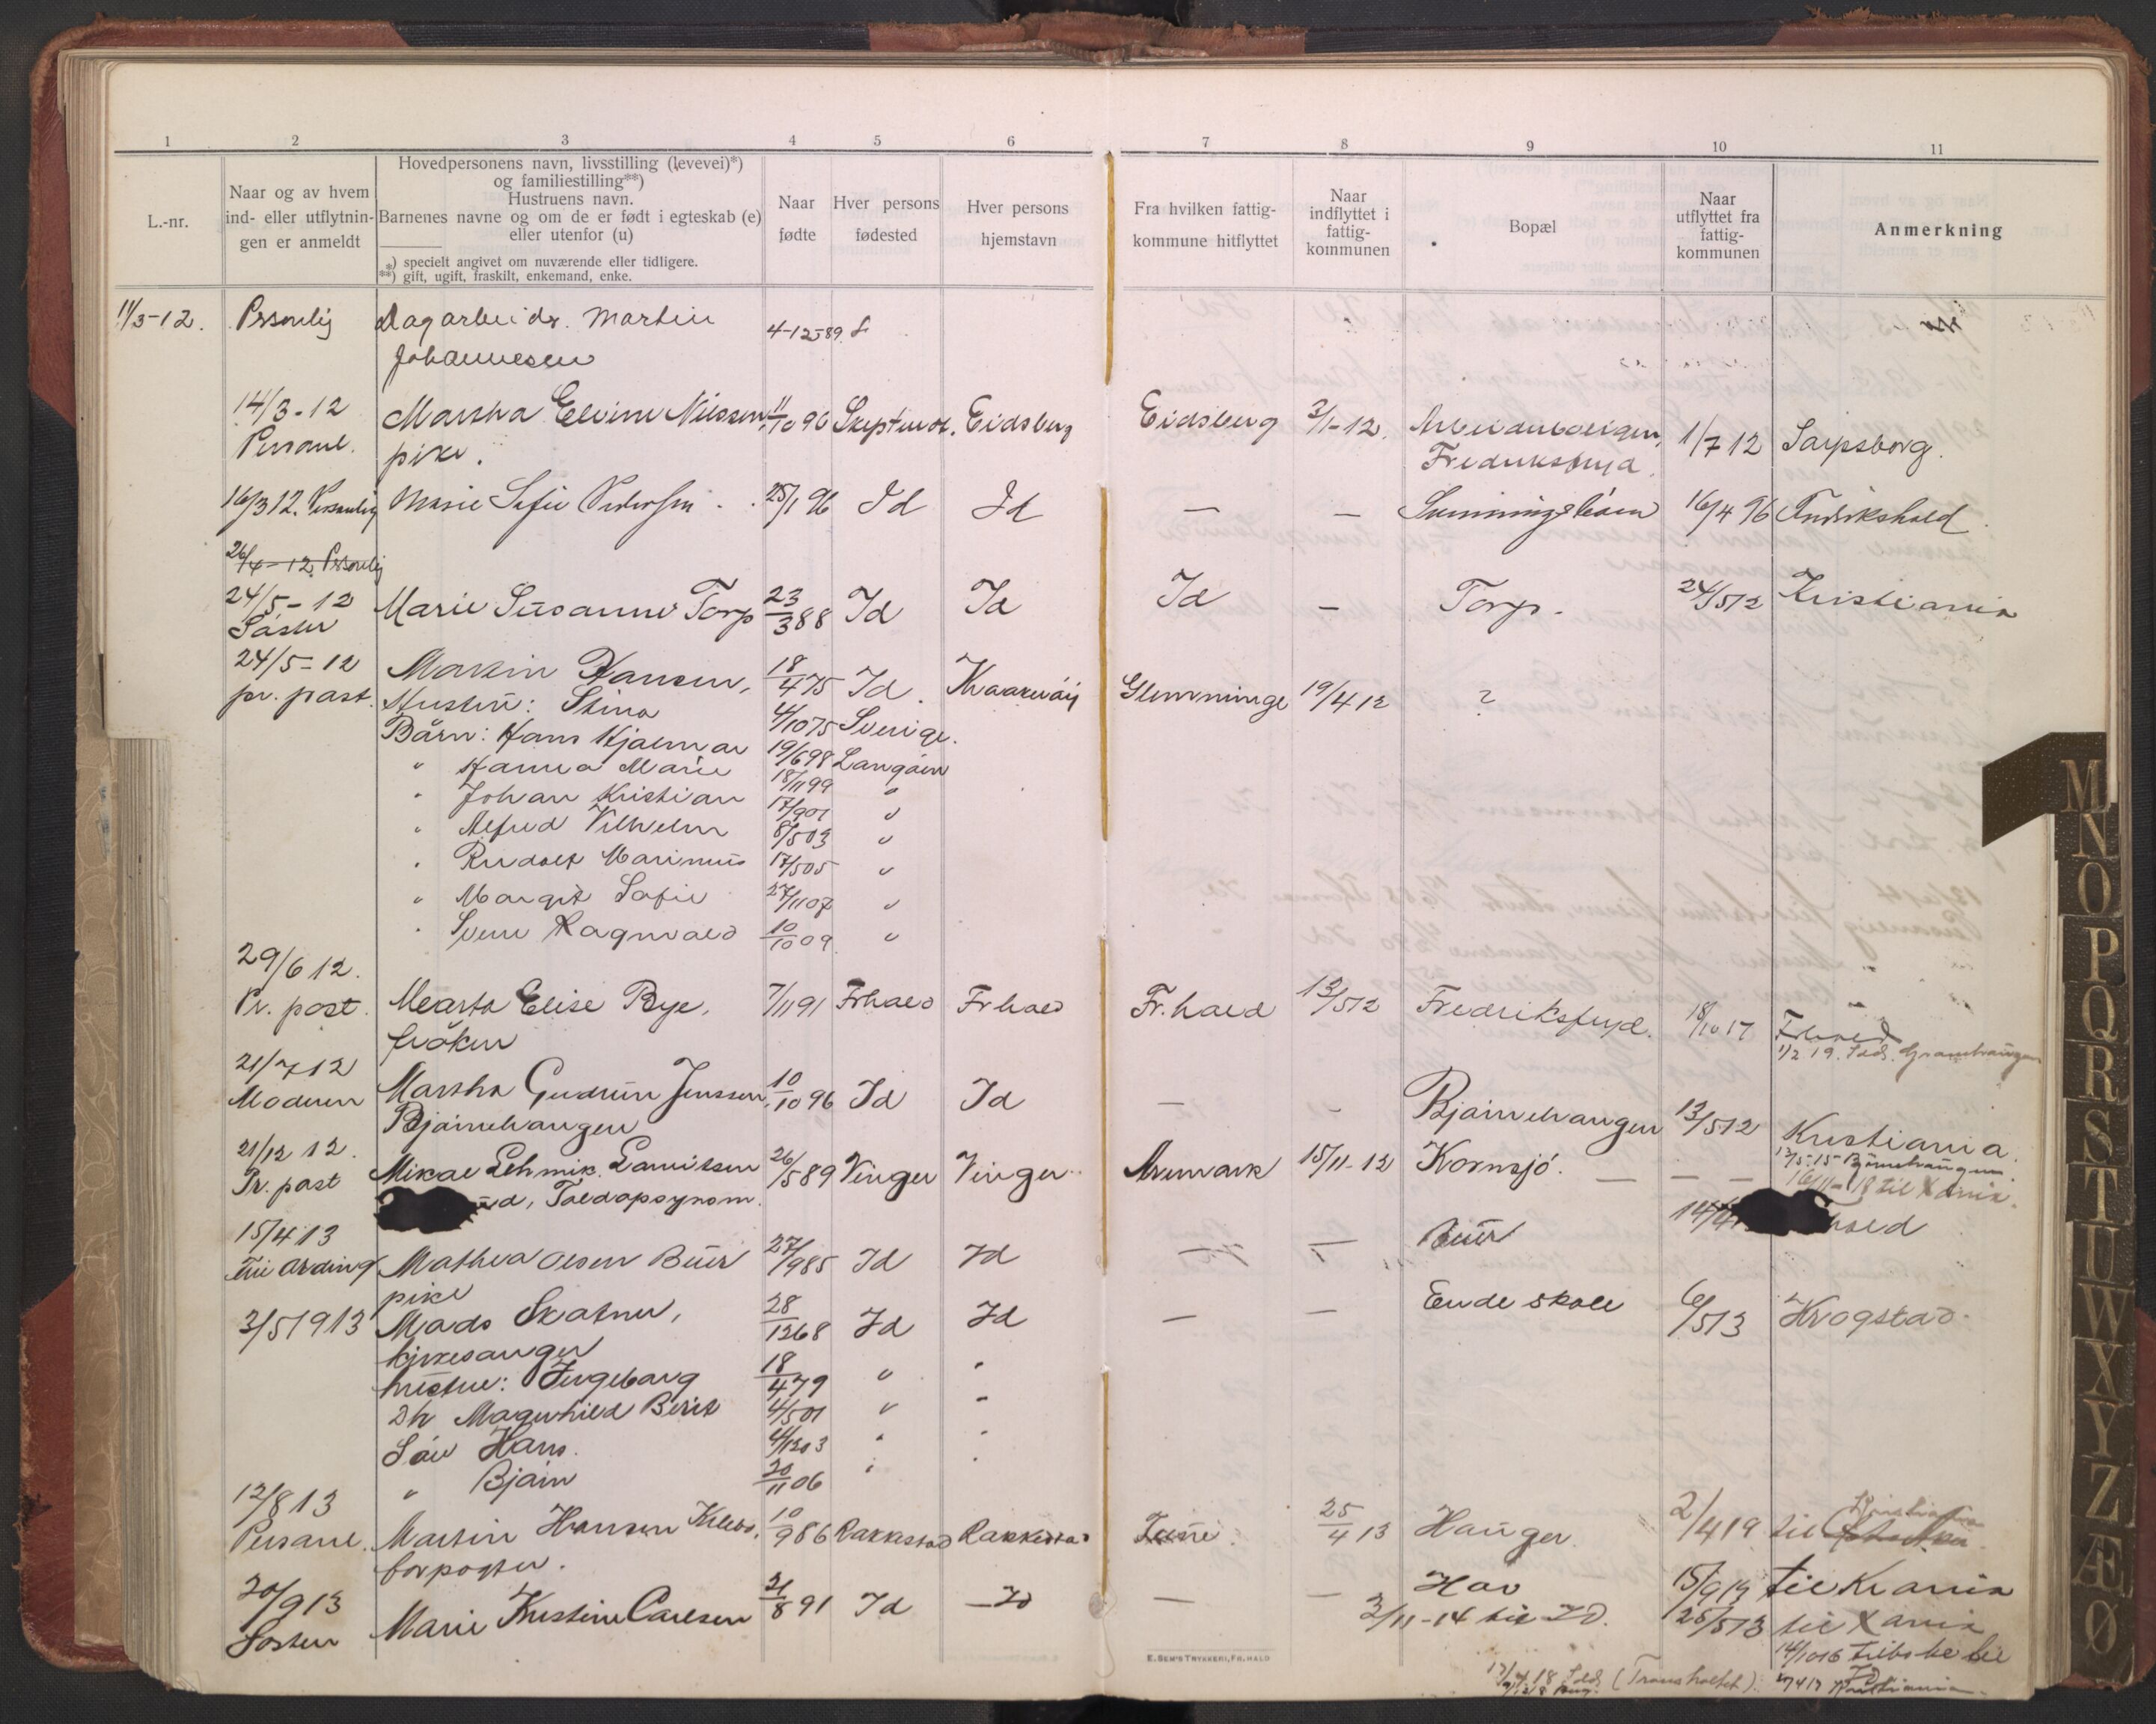 1 2 3 4 5 6 7 8 9 10 11
L.-nr.
Naar og av hvem
ind- eller utflytnin-
gen er anmeldt
Hovedpersonens navn, livsstilling (levevei)*)
og familiestilling**)
Hustruens navn.
Barnenes navne og om de er født i egteskab (e)
eller utenfor (u)
*) specielt angivet om nuværende eller tidligere.
**) gift, ugift, fraskilt, enkemand, enke.
Naar
fødte
Hver persons
fødested
Hver persons
hjemstavn
Fra hvilken fattig-
kommune hitflyttet
Naar
indflyttet i
fattig-
kommunen
Bopæl
Naar
utflyttet fra
fattig-
kommunen
Anmerkning
11/3-12. Personlig Dagarbeidr. Martin 4-12-89
Johannesen
14/3-12 Martha Elvine Nilssen, 11/10 96 Eidsberg Eidsberg 3/1-12. Arbeiderboligen, 1/7 12 Sarpsborg.
Personl. pike. Fredriksfryd.
16/3 12. Personlig Marie Sofie Pedersen 25/1 96 Id Id — — 16/4 96 Fredrikshald
26/4-12 Personlig
24/5-12 Marie Susanne Torp 23/3 88 Id Id Id — Torp. 24/5 12 Kristiania
Søster
24/5-12 Martin Hansen, 18/4 75 Id. Glemminge 19/4 12 ?
pr. post. Hustru: Stina 4/10 75 Sverige.
Børn: Hans Hjalmar 19/6 98 Langøen
" Hanna Marie 18/11 99 "
" Johan Kristian 17/9 01 "
" Alfred Vilhelm 8/5 03 "
" Rudolf Marinius 17/5 05 "
" Margit Sofie 27/11 07 "
" Sverre Ragnvald 10/10 09 "
29/6 12.
Pr. post. Marta Elise Bye, 7/11 91 Frhald Frhald Fr.hald 13/5 12 Fredriksfryd. 18/10 17 Frhald
frøken 1/2 19. Idd.
21/7 12
Moderen Martha Gudrun Jenssen, 10/10 96 Id Id — - Bjørnehaugen 13/5 12 Kristiania.
Bjørnehaugen
21/12 12. Mikal Lauritsen 26/5 89 Vinger Vinger Aremark 15/11-12 Kornsjø. — — — 13/5-15 Bjørnehaugen
Pr. post Toldopsynsm. 16/11-18 til Xania.
15/4 13 Buer hald
Mathea Olsen Buer 27/9 85 Id Id — —
pike
3/5 1913 Mads Skatner, 28/12 68 Id Id — — Ende skole 6/5 13 Krogstad.
kirkesanger
hustru: Ingeborg 18/4 79 " "
Dtr Magnhild Berit 4/5 01 " "
Søn Hans. 4/12 03 " "
" Bjørn 20/11 06 "
12/8 13
Personl. Martin Hansen 10/9 86 Rakkestad Rakkestad Tune 25/4 13 Hauger. 2/4 19 til Kristiania
forpagter.
20/9 13 Marie Kristine Carlsen 21/8 91 Id Id — — Hov 15/9 13 til Krania
Søster 3/11-14 til Id. 28/5 13 til Xania
14/10 16 tilbake til
Id
Kristiania
E. SEM'S TRYKKERI, FR.HALD
M
N
O
P
Q
R
S
T
U
W
X
Y
Z
Æ
Ø